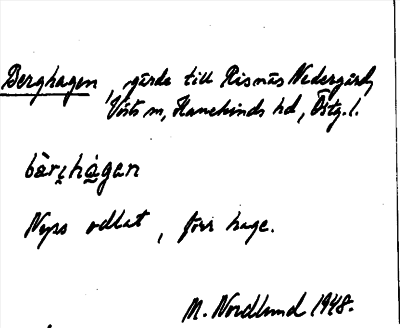 Berghagen, gärde till Risnäs Nedergård,
Vists sn, Hanekinds hd, Östg. l.
bàrᶎhágan
Nyss odlat, förr hage.
M. Nordlund 1948.